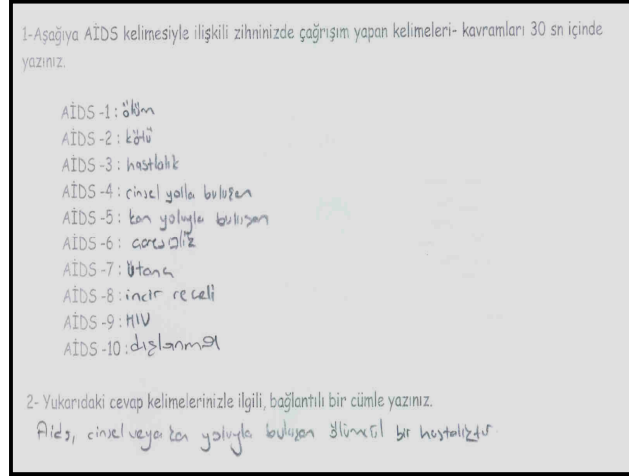 1-Aşağıya AİDS kelimesiyle ilişkili zihninizde çağrışım yapan kelimeleri- kavramları 30 sn içinde
yazınız.
AİDS -1 : ölüm
AİDS -2 : kötü
AİDS -3 : hastlalık
AİDS -4 : cinsel yolla buluşan
AİDS -5 : kan yoluyla bulışan
AİDS -6 :
AİDS -7 : Utanç
AİDS -8 : incir receli
AİDS -9 : HIV
AİDS -10 : dışlanma
2- Yukarıdaki cevap kelimelerinizle ilgili, bağlantılı bir cümle yazınız.
Aids, cinsel veya kan yoluyla bulaşan ölümcül bir hastalıktır.